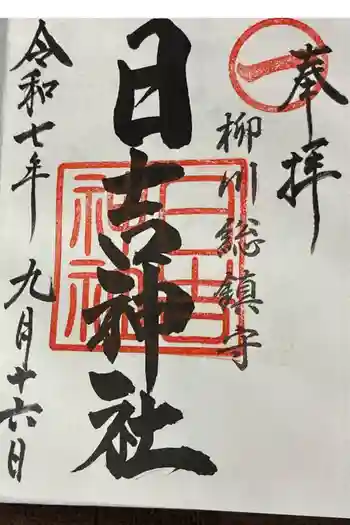 奉拝
柳川総鎮守
日吉神社
令和七年 九月十六日
日吉
神社